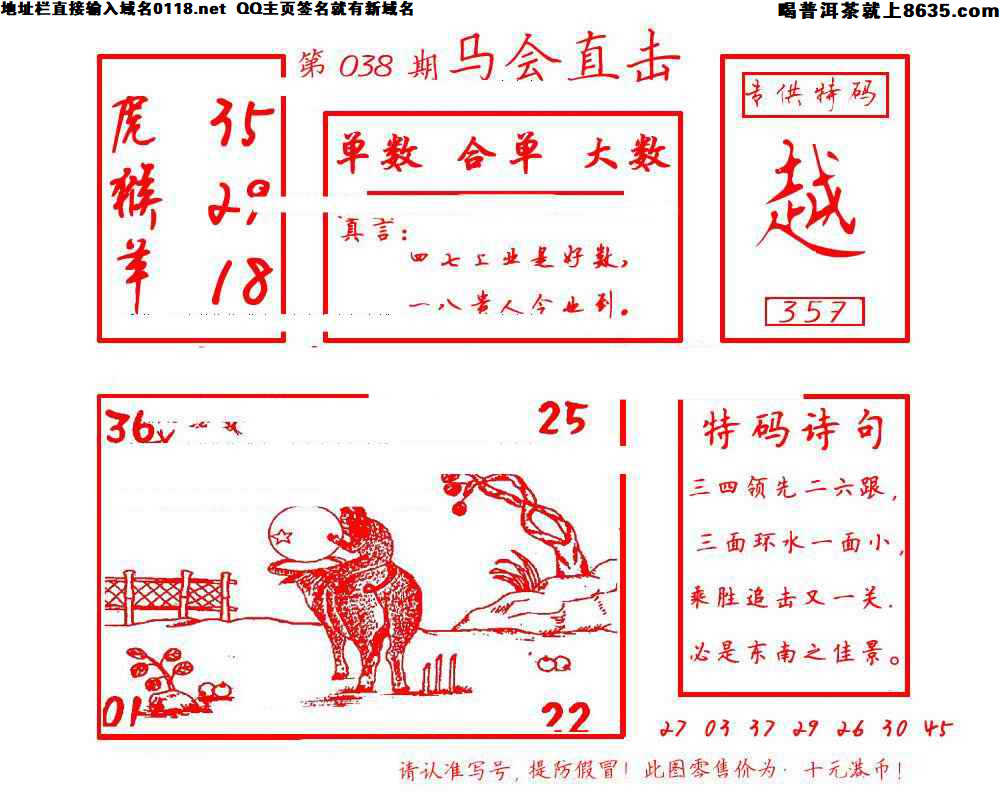 地址栏直接输入域名0118.net QQ主页签名就有新域名
喝普洱茶就上8635.com
第038期 马会直击
虎 35
猴 29
羊 18
单数 合单 大数
真言：
四七工业是好数，
一八贵人今业到。
专供特码
越
357
36
25
01
22
特码诗句
三四领先二六跟，
三面环水一面小，
乘胜追击又一关．
必是东南之佳景。
27 03 37 29 26 30 45
请认准写号，提防假冒！此图零售价为·十元港币！